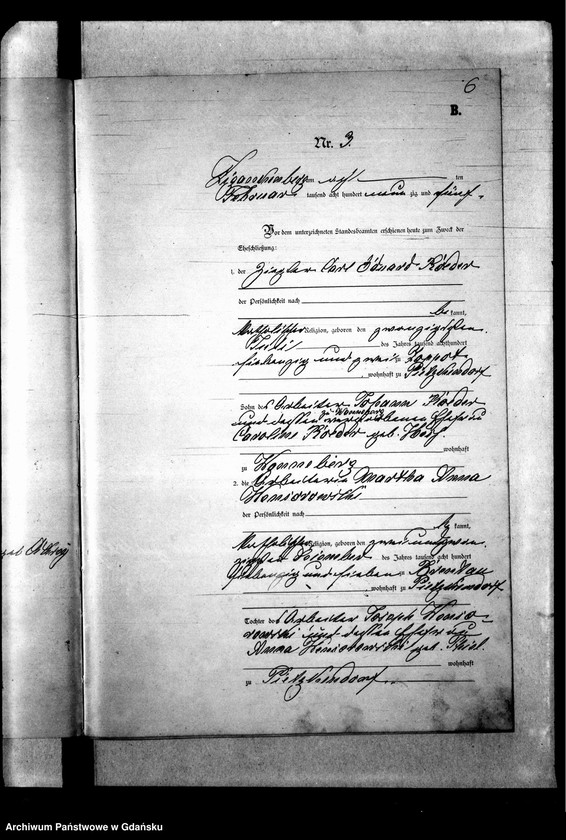 6
B.
Nr. 3.
Zigankenberg am acht ten
Februar tausend acht hundert neun zig und fünf.
Vor dem unterzeichneten Standesbeamten erschienen heute zum Zweck der
Eheschließung:
1. der Ziegler Carl Eduard Röder
der Persönlichkeit nach
be kannt,
katholischer Religion, geboren den zwanzigsten
Juli des Jahres tausend achthundert
siebenzig und zwei zu Zoppot
, wohnhaft zu Pietzkendorf
Sohn des Arbeiter Johann Roeder
zu Wonneberg
und dessen verstorbenen Ehefrau
Caroline Roeder geb.
wohnhaft
zu Wonneberg
2. die Arbeiterin Martha Anna
der Persönlichkeit nach
be kannt,
katholischer Religion, geboren den zwei und zwan
zigsten Dezember des Jahres tausend acht hundert
siebenzig und sieben zu Brentau
, wohnhaft zu Pietzkendorf
Tochter des Arbeiter Joseph
und dessen Ehefrau
Anna geb.
wohnhaft
zu Pietzkendorf
geb.
Archiwum Państwowe w Gdańsku